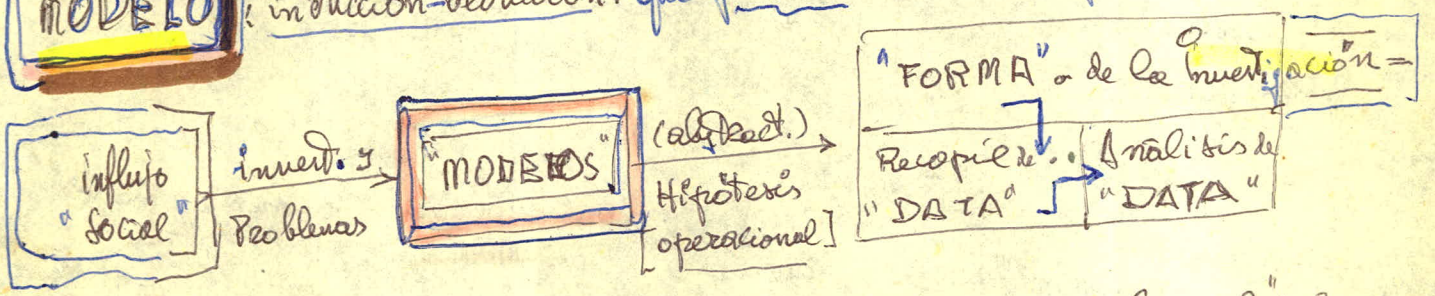 MODELO : inducción-deducción: que
influjo
"Social"
invest. y
Problemas
"MODELOS"
(abstract.)
Hipótesis
operacional]
"FORMA" o de la Investigación =
Recopil. de ..
"DATA"
Análisis de
"DATA"